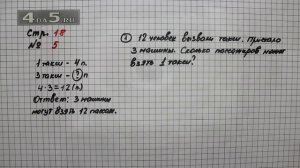 4АП5.ru
Стр. 18
№ 5
1 такси - 4п.
3 такси - ? п
4·3=12(п)
Ответ: 3 машины
могут взять 12 пассаж.
① 12 человек вызвали такси. Приехало
3 машины. Сколько пассажиров может
взять 1 такси?